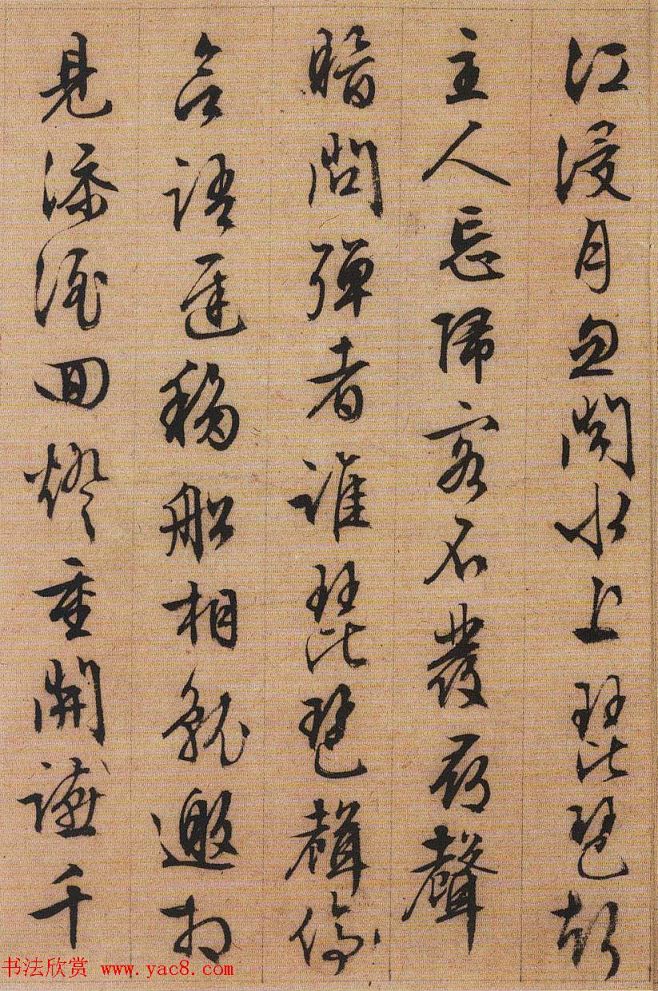 江浸月忽聞水上琵琶聲
主人忘歸客不發尋聲
暗問彈者誰琵琶聲停
欲語遲移船相就邀相
見添酒回燈重開讌千
书法欣赏 www.yac8.com